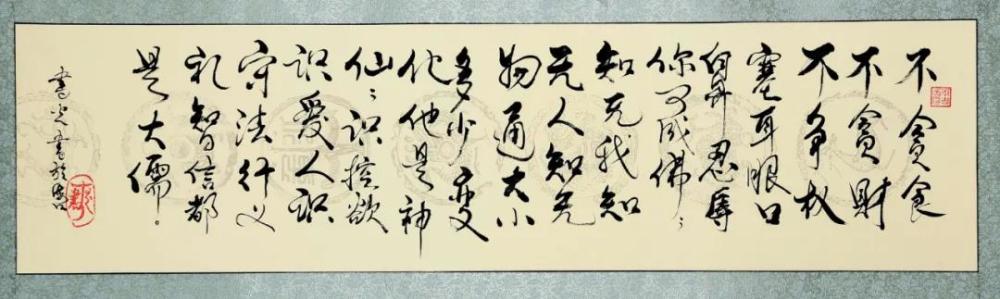 不貪食
不貪財
不争权
塞耳眼口
鼻忍辱
你可成佛々
知无我知
无人知无
物通大小
多少变
化他是神
仙々识控欲
识爱人识
守法行义
礼智信都
是大儒
书於